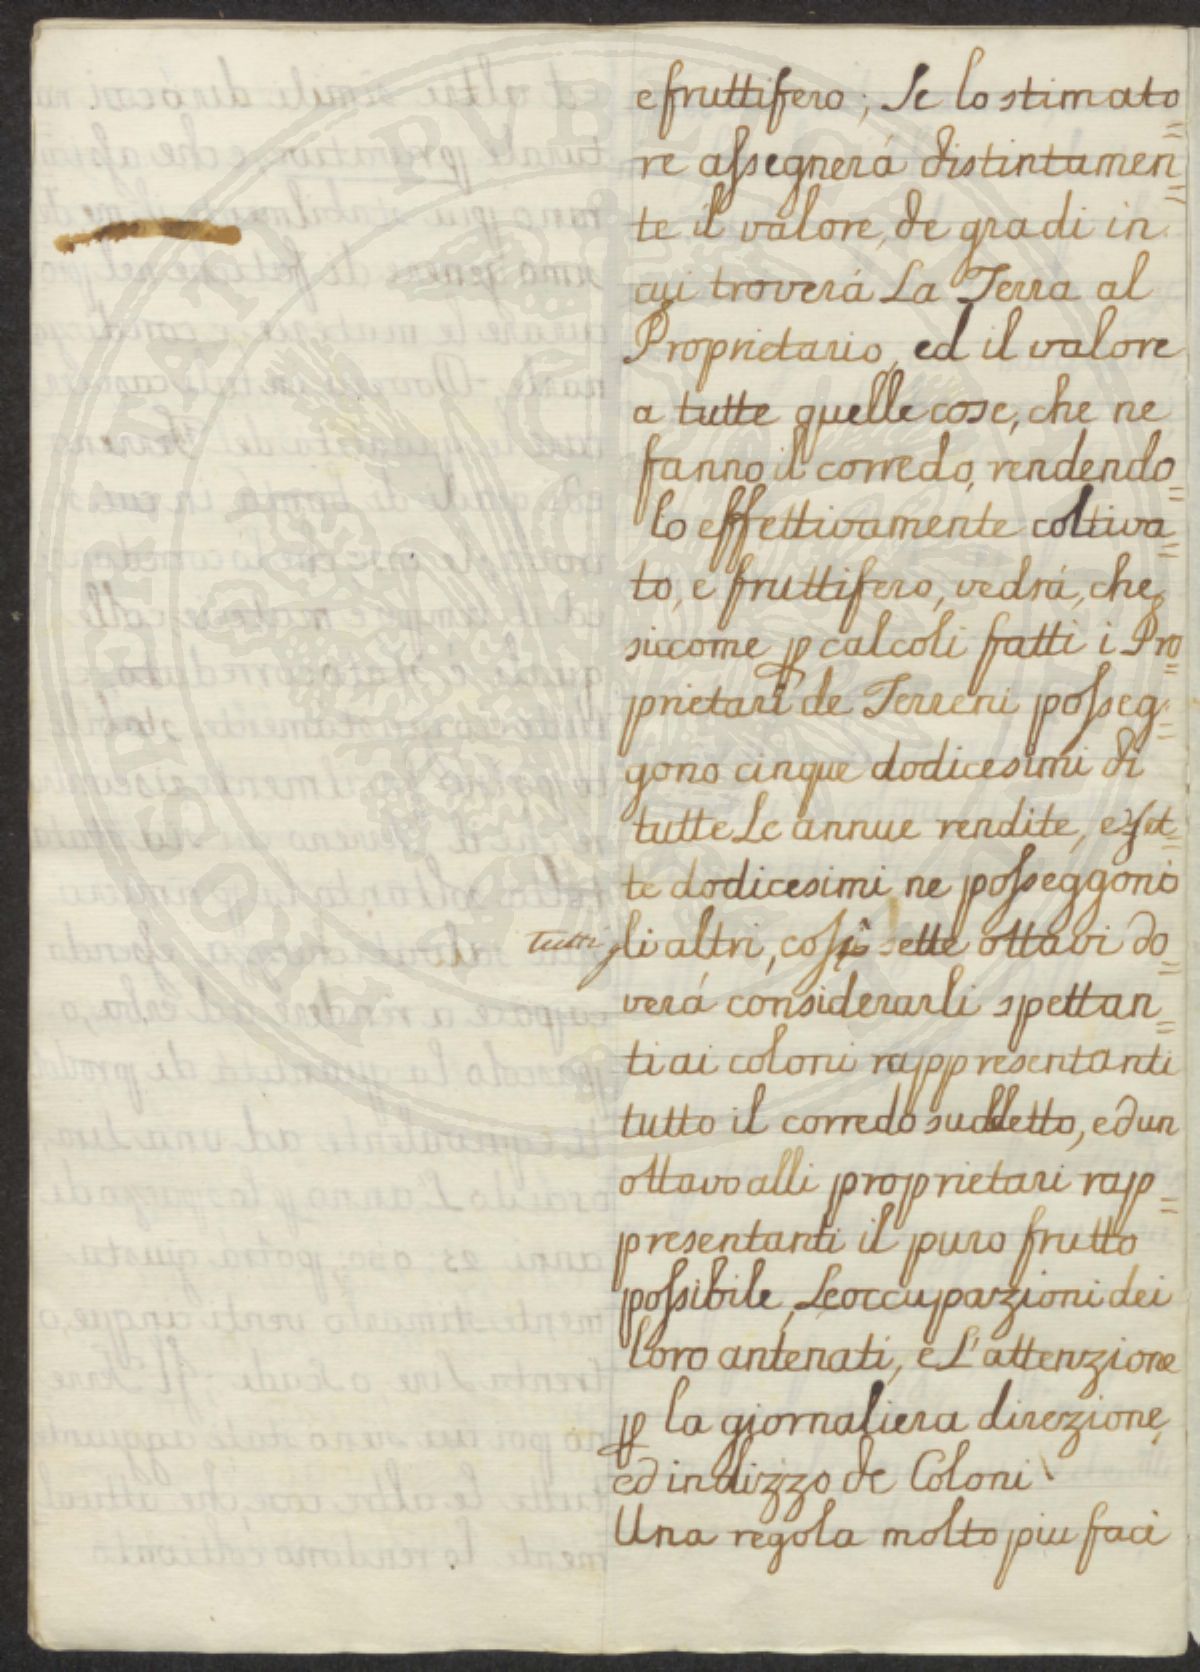 e fruttifero; Se lo stimato=
re assegnerá distintamen=
te il valore, de gradi in
cui troverá La Terra al
Proprietario, ed il valore
a tutte quelle cose, che ne
fanno il corredo, rendendo=
lo effettivamente coltiva=
to, e fruttifero, vedrá, che,
siccome p calcoli fatti i Pro=
prietari de Terreni posseg=
gono cinque dodicesimi di
tutte Le annue rendite, e set=
te dodicesimi ne posseggono
tutti gli altri, così sette ottavi do=
verá considerarli spettan=
ti ai coloni rappresentanti
tutto il corredo suddetto, ed un
ottavo alli proprietari rap=
presentanti il puro frutto
possibile, Le occupazioni dei
loro antenati, e L'attenzione
p la giornaliera direzione,
ed indizzo de Coloni
Una regola molto piu faci